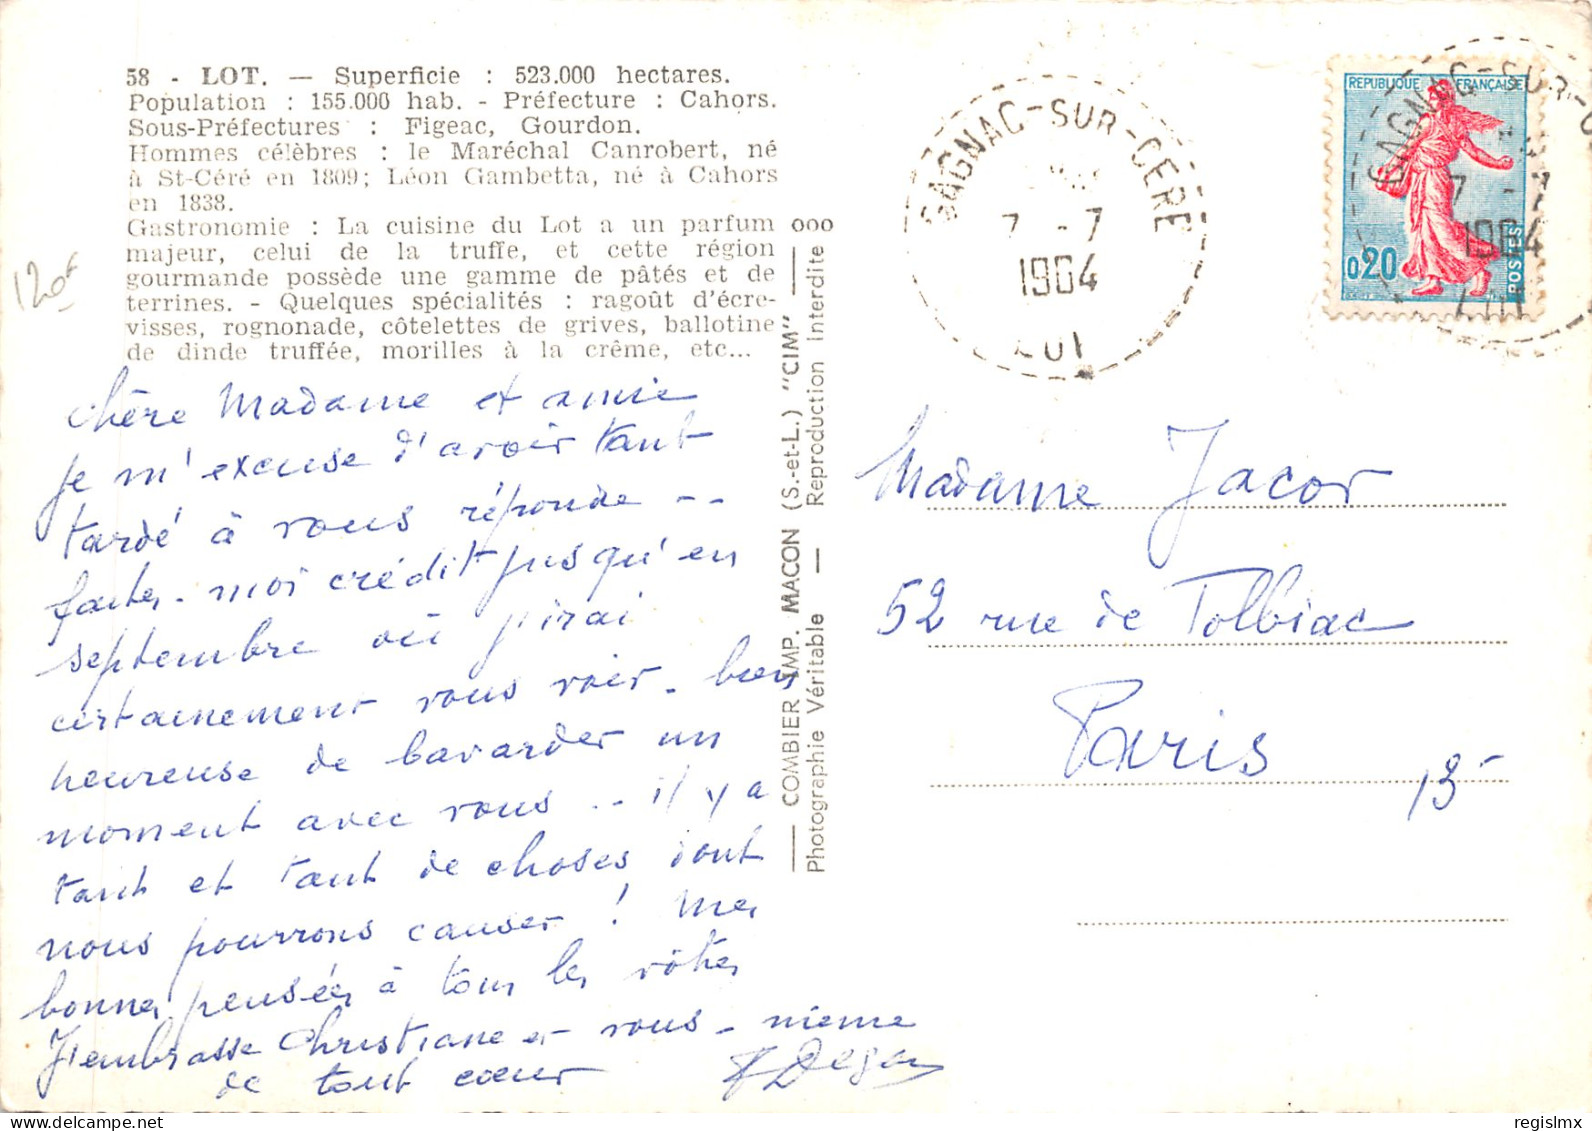 58 - LOT. — Superficie : 523.000 hectares.
Population : 155.000 hab. - Préfecture : Cahors.
Sous-Préfectures : Figeac, Gourdon.
Hommes célèbres : le Maréchal Canrobert, né
à St-Céré en 1809; Léon Gambetta, né à Cahors
en 1838.
Gastronomie : La cuisine du Lot a un parfum
majeur, celui de la truffe, et cette région
gourmande possède une gamme de pâtés et de
terrines. - Quelques spécialités : ragoût d'écre-
visses, rognonade, côtelettes de grives, ballotine
de dinde truffée, morilles à la crême, etc...
120F
chère Madame et amie
je m'excuse d'avoir tant
tardé à vous réponde --
faites-moi crédit jusqu'en
septembre où j'irai
certainement vous voir - bien
heureuse de bavarder un
moment avec vous .. il y a
tant et tant de choses dont
nous pourrons causer ! Mes
bonnes pensées à tous les vôtres
J'embrasse Christiane et vous-même
de tout cœur
COMBIER IMP. MACON (S.-et-L.) "CIM"
Photographie Véritable — Reproduction Interdite
GAGNAC-SUR-CERE
7 - 7
1964
LOT
REPUBLIQUE FRANÇAISE
0,20
POSTES
GAGNAC-SUR-C
7 - 7
1964
LOT
Madame Jacor
52 rue de Tolbiac
Paris 13
regislmx